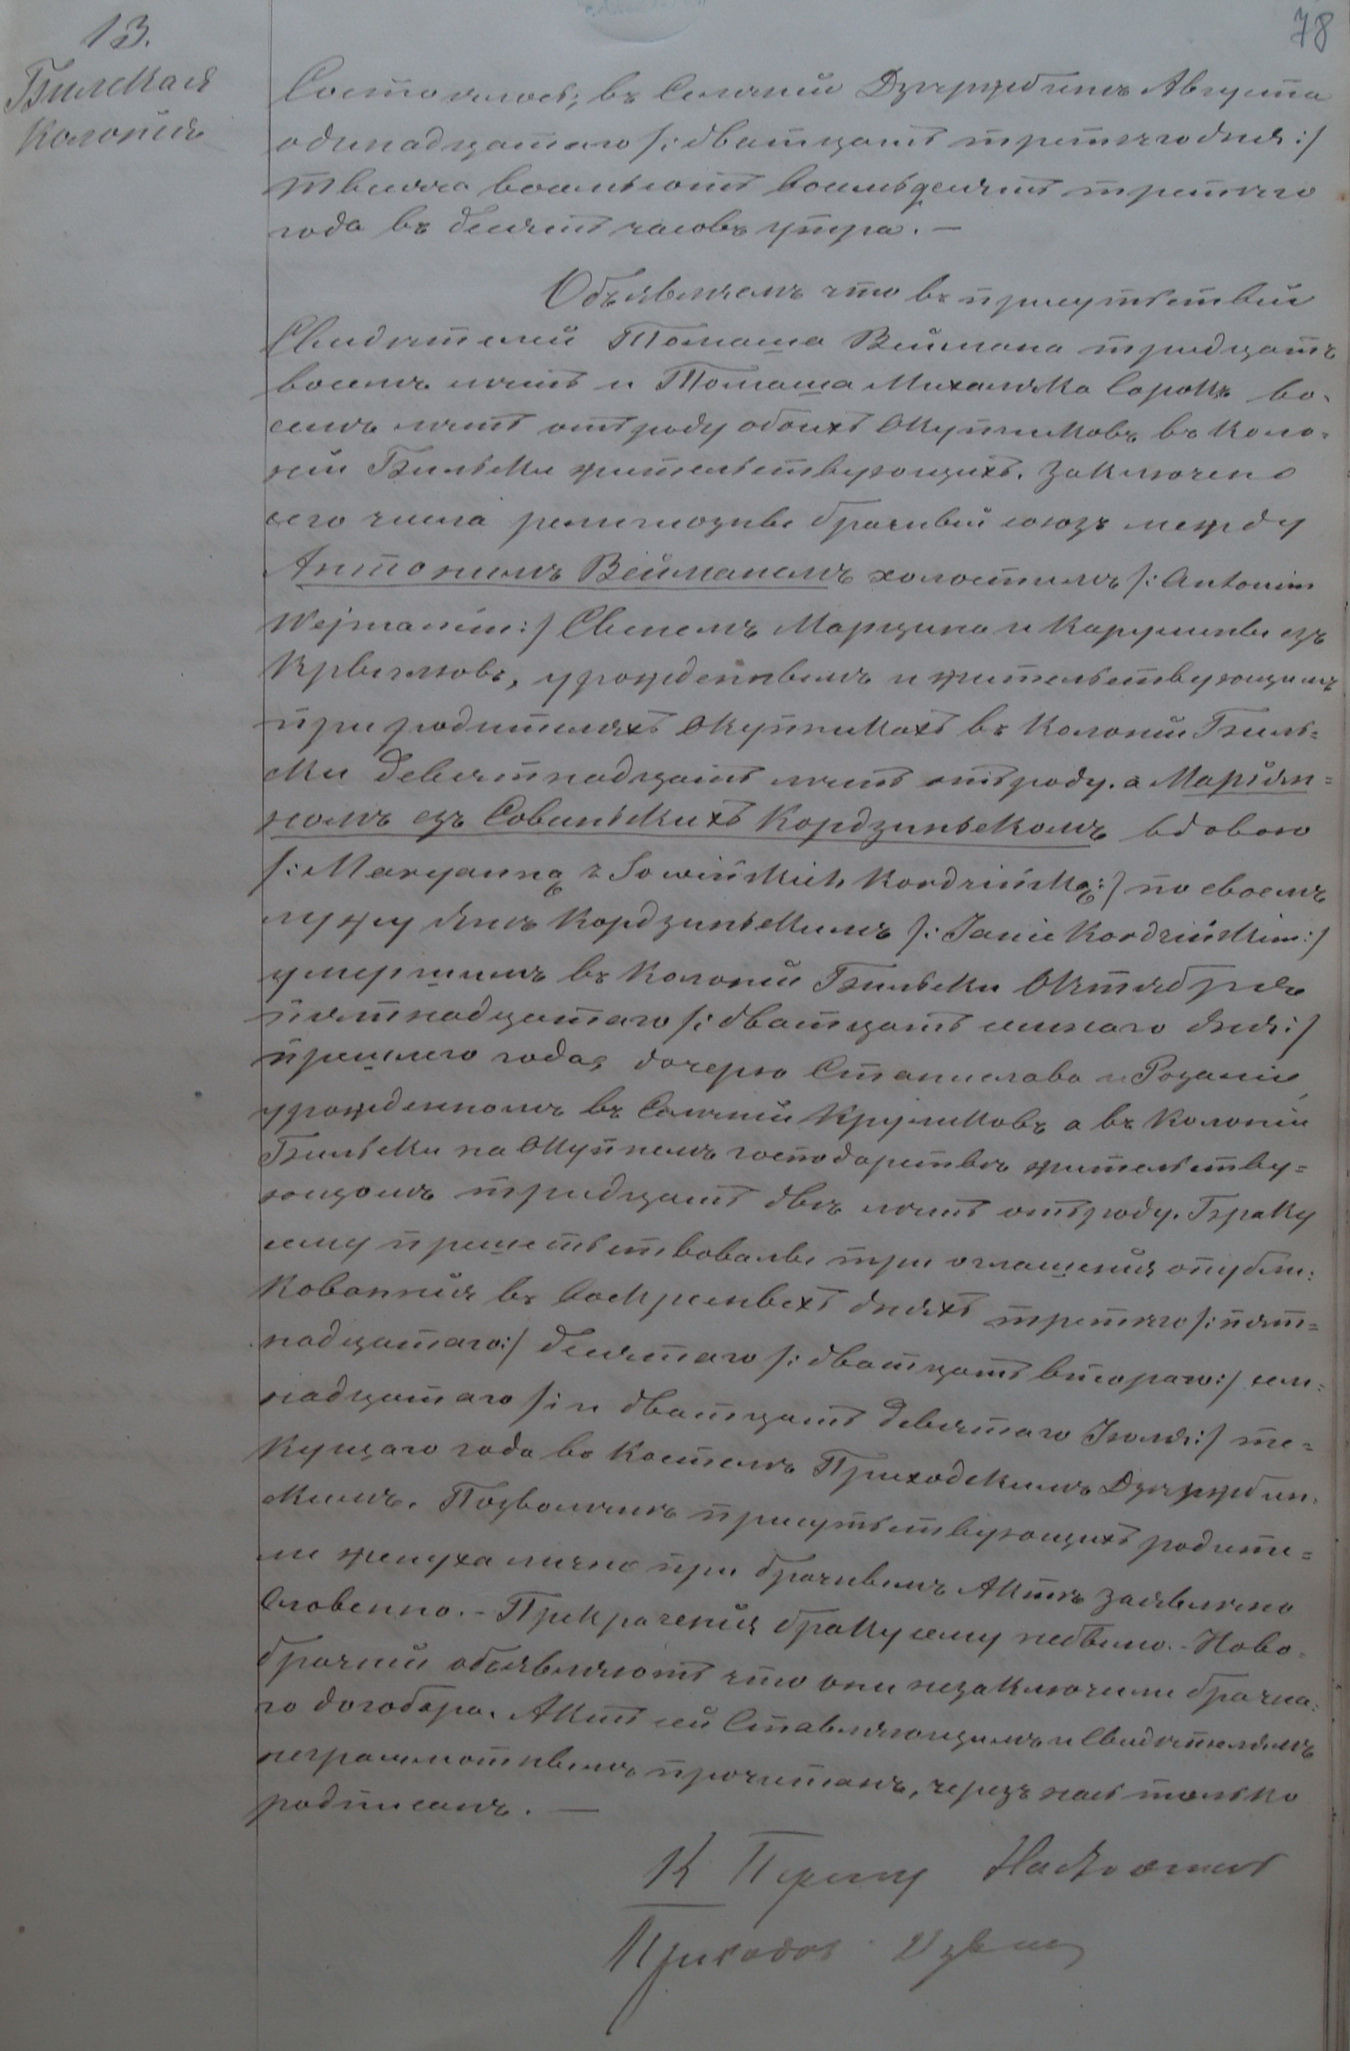 78
13.
Бильская
Колонія
Состоялось, въ Селеніи Августа
одинадцатаго /: дватцать третяго дня :/
тысяча восемьсотъ восемьдесятъ третяго
года въ десять часовъ утра. —
Объявляемъ что въ присутствіи
Свидѣтелей Томаша Веймана тридцать
восемъ лѣтъ и Томаша Михаляка сорокъ во-
семъ лѣтъ отъ роду обоихъ Окупниковъ въ Коло-
ніи Бильски жительствующихъ. Заключенъ
сего числа религіозны брачный союзъ между
Антонимъ Вейманемъ холостымъ /: Antonim
Wejmanim :/ Сынемъ Марцина и Карулины изъ
, урожденнымъ и жительствующимъ
при родителяхъ Окупникахъ въ Колоніи Биль-
ски девятнадцать лѣтъ отъ роду. а Маріян-
номъ изъ Совинскихъ Кордзиньскомъ вдовою
/: Maryanną z Sowińskich Kordzińską :/ по своемъ
мужу Янѣ Кордзиньскимъ /: Janie Kordzińskim :/
умершимъ въ Колоніи Бильски Октября
пятнадцатаго /: дватцать семаго дня :/
прешлего года, дочерю Станислава и Розаліи
урожденномъ въ Селеніи Круликовъ а въ Колоніи
Бильски на Окупнемъ господарствѣ жительству-
ющомъ тридцать двѣ лѣтъ отъ роду. Браку
сему прешетьствовалы три оглашенія опубли-
кованнія въ Воскресныхъ дняхъ третяго /: пят-
надцатаго :/ десятаго /: дватцать втораго :/ сем-
надцатаго /: и дватцать девятаго Іюля :/ те-
кущаго года во Костелѣ Приходскимъ
скимъ. Позволеніе присутьствующихъ родите-
ли жениха лично при брачнымъ Актѣ заявлено
Словенно. - Прекраченія браку сему небыло. - Ново-
брачніи объявляютъ что они незаключили брачна-
го договора. Актъ сей Ставляющимъ и Свидѣтелямъ
неграмотнымъ прочитанъ, черезъ насъ только
подписанъ. —
К